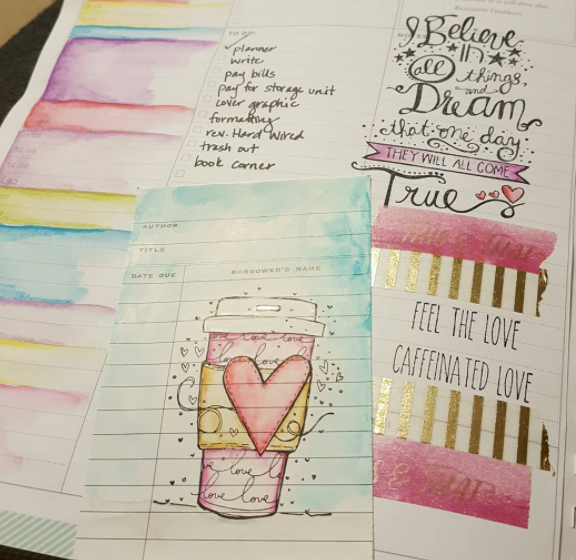 TO DO:
planner
write
pay bills
pay for storage unit
cover graphic
formatting
rev. Hard Wired
trash out
book corner
NOTES
I Believe
in
all things,
and
Dream
that one day
THEY WILL ALL COME
True
FEEL THE LOVE
CAFFEINATED LOVE
AUTHOR
TITLE
DATE DUE
BORROWER'S NAME
love love love
love love
love love
love love